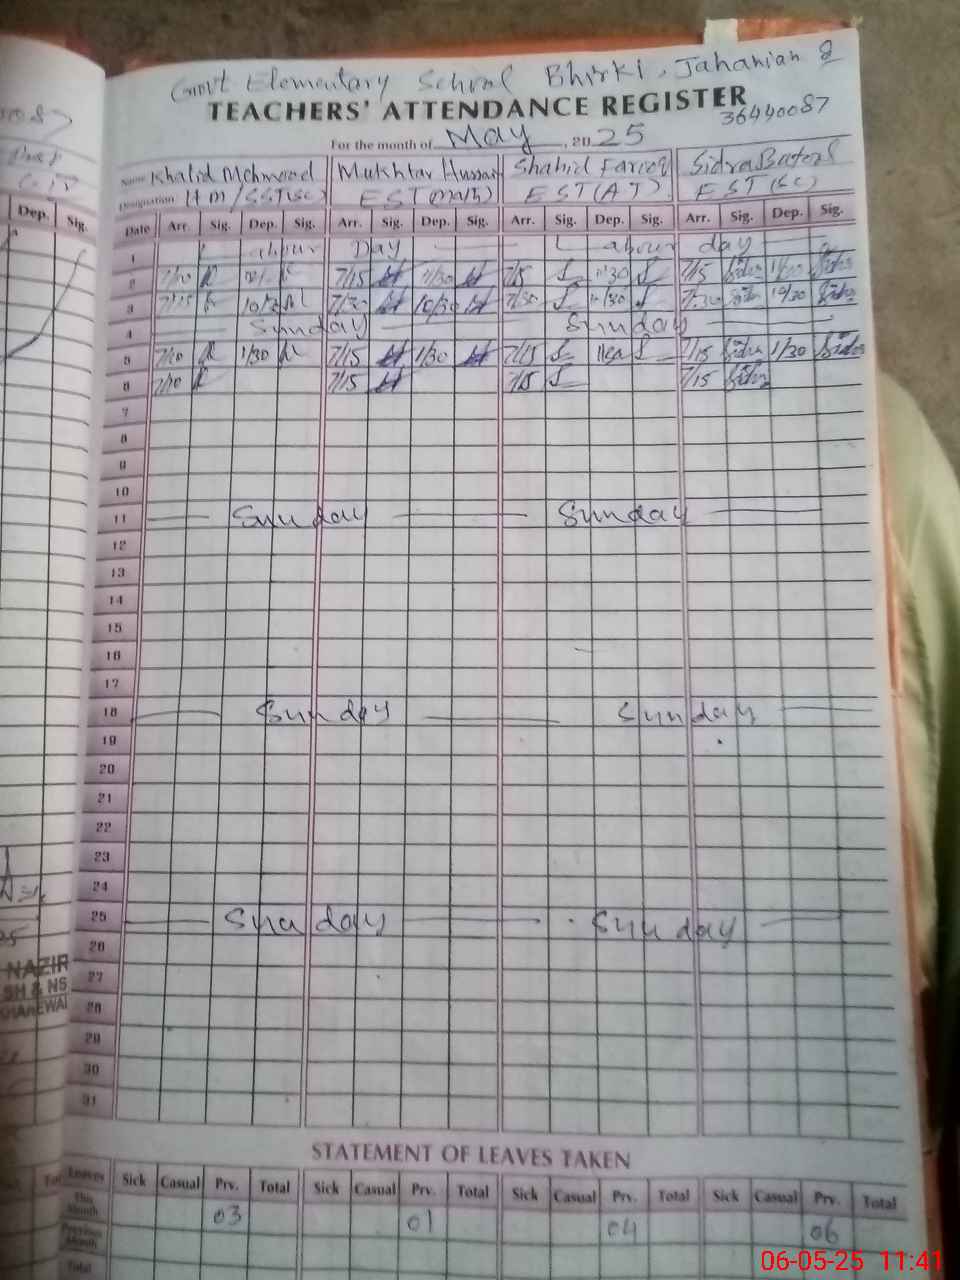 Govt Elementary School Bhirki, Jahanian
TEACHERS' ATTENDANCE REGISTER
36440087
For the month of May, 2025
Name Khalid Mehmood Mukhtar Hussain Shahid Farooq Sidra Batool
Designation HM/SST(SC) EST(Math) EST(AT) EST(SC)
Dep. Sig. Date Arr. Sig. Dep. Sig. Arr. Sig. Dep. Sig. Arr. Sig. Dep. Sig. Arr. Sig. Dep. Sig.
1 Labour Day Labour day
2 7/10 7/15 11/30 7/15 11/30 7/15 Sidra Sidra
3 7/15 7/30 10/30 7/30 7/30 Sidra 10/30 Sidra
4 Sunday Sunday
5 7/10 1/30 7/15 1/30 7/15 7/15 Sidra 1/30 Sidra
6 7/10 7/15 7/15 7/15 Sidra
7
8
9
10
11 Sunday Sunday
12
13
14
15
16
17
18 Sunday Sunday
19
20
21
22
23
24
25 Sunday Sunday
26
NAZIR 27
SH & NS 28
KHANEWAL
29
30
31
STATEMENT OF LEAVES TAKEN
Leaves Sick Casual Prv. Total Sick Casual Prv. Total Sick Casual Prv. Total Sick Casual Prv. Total
This Month 03 01 04 06
Previous Month
Total
06-05-25 11:41